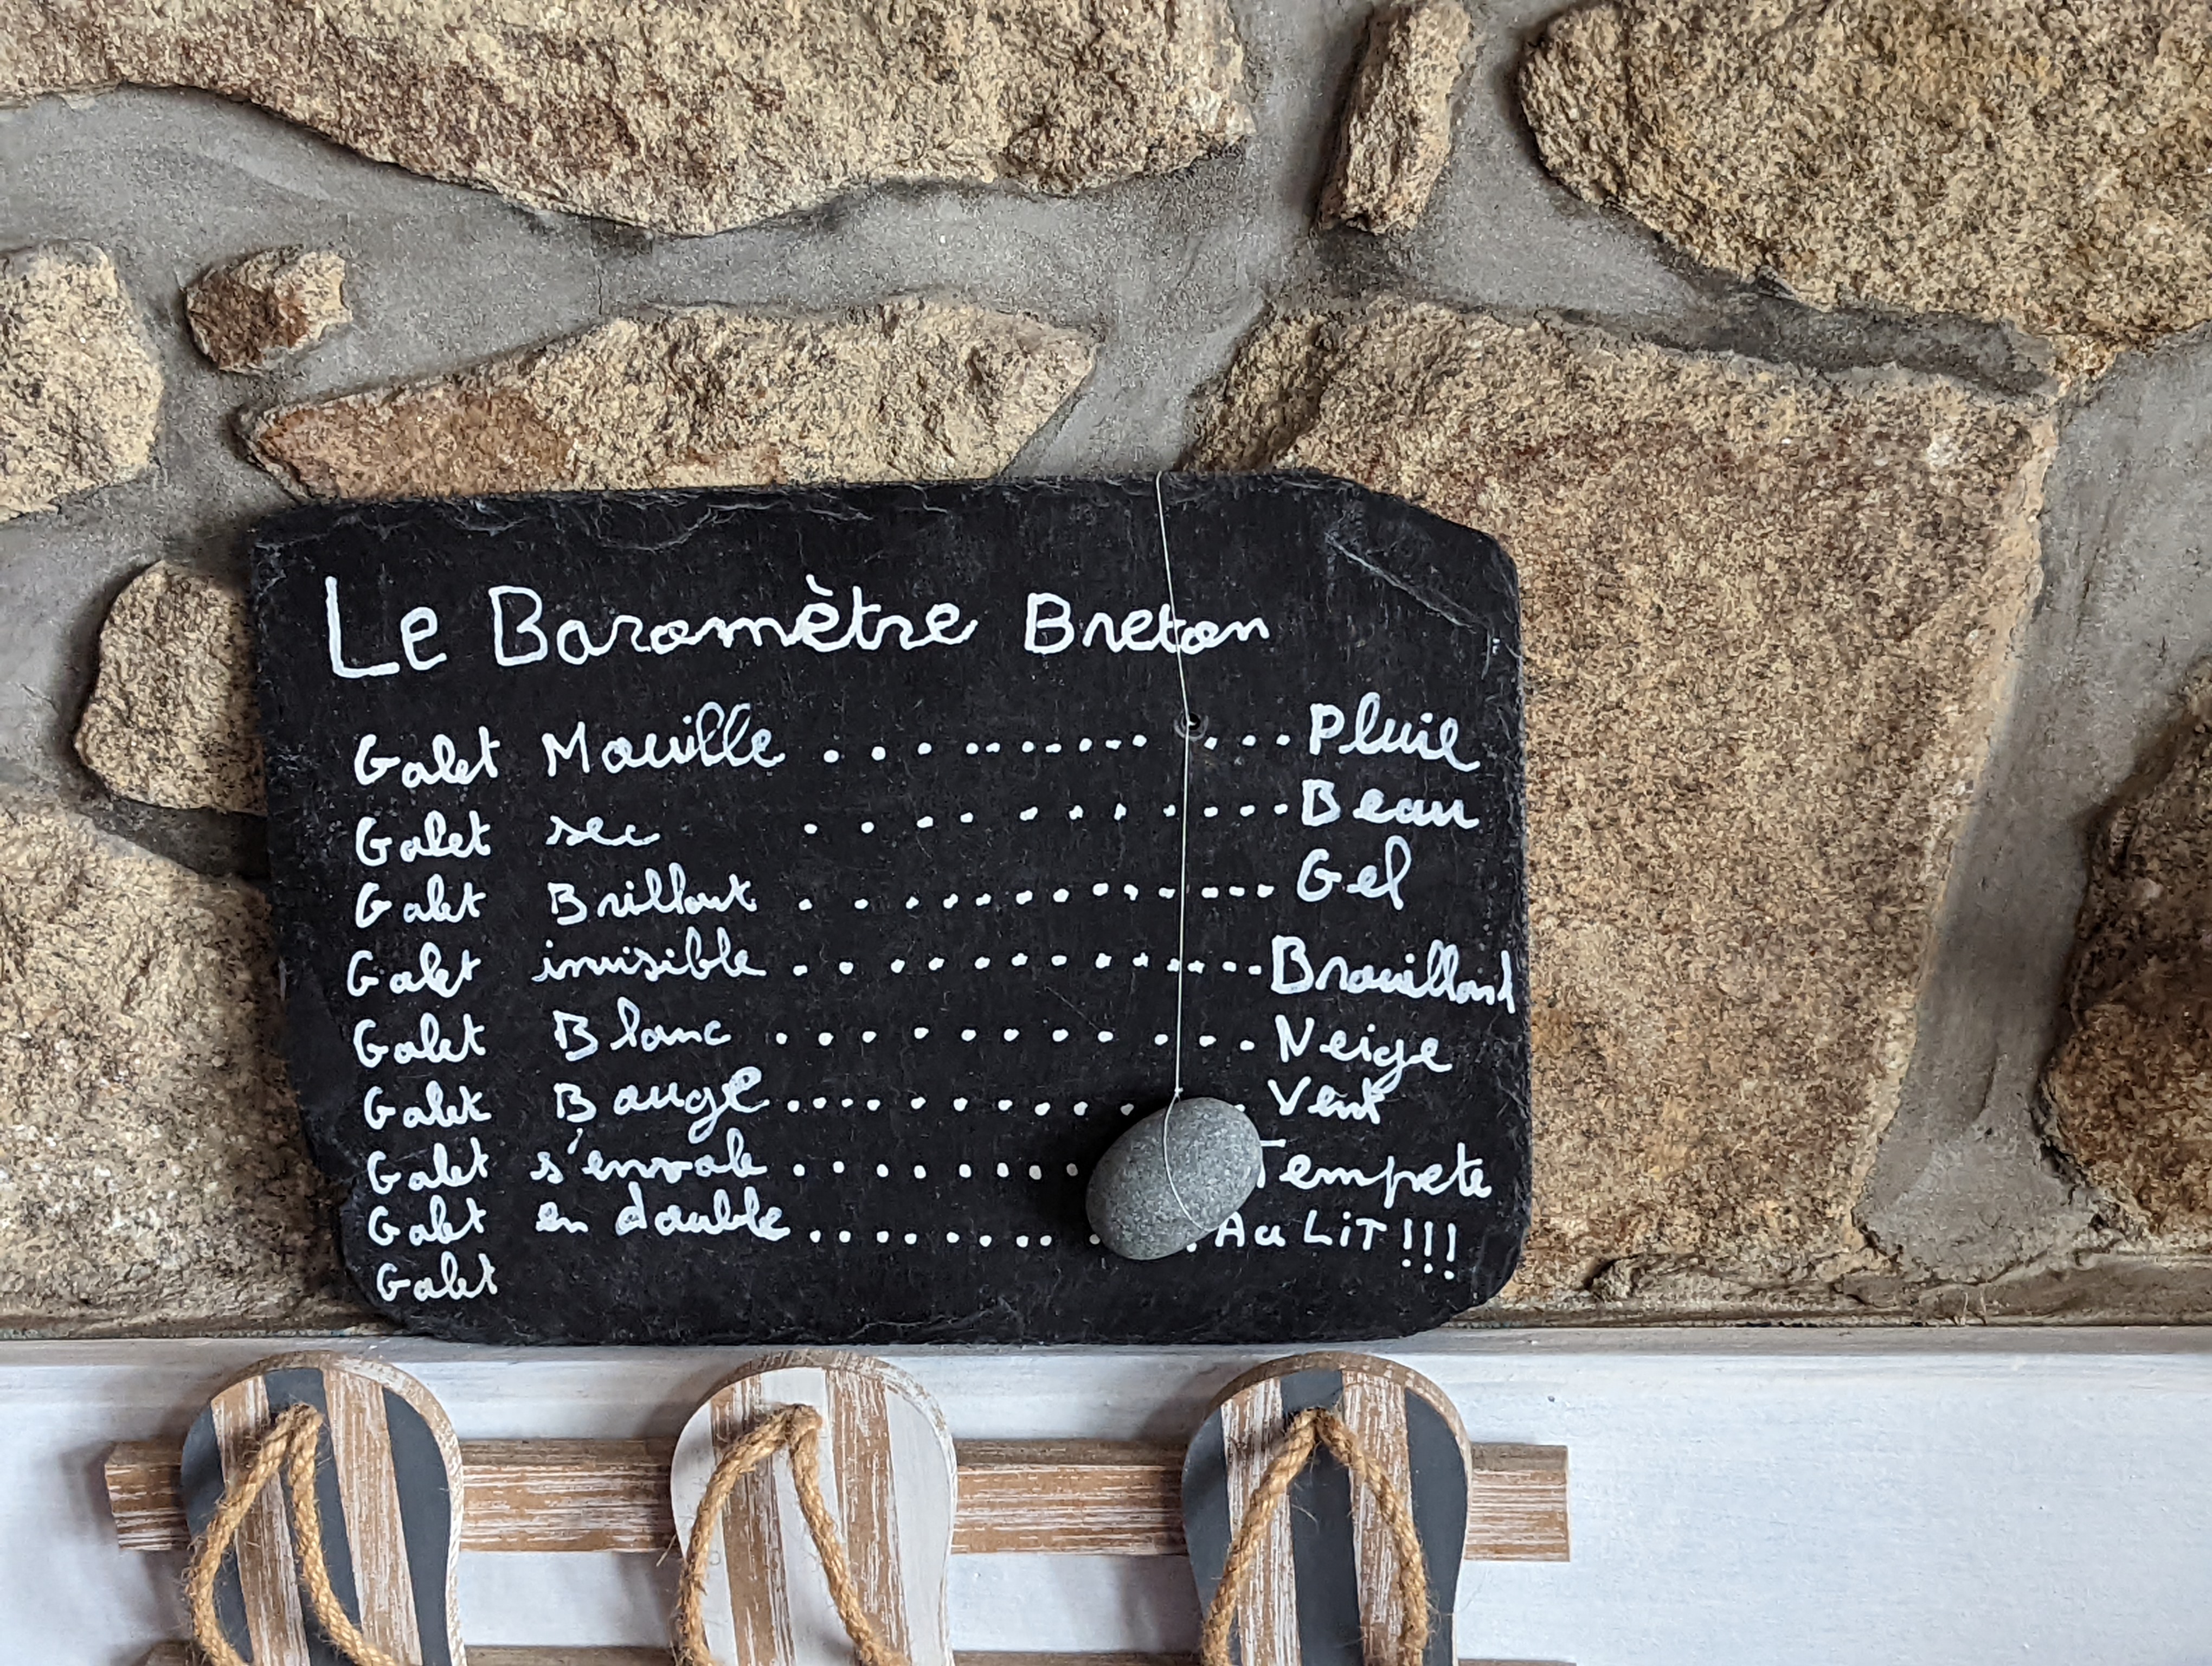 Le Baromètre Breton
Galet Mouille . . . . . . . . . . . . . . Pluie
Galet sec . . . . . . . . . . . . Beau
Galet Brillant . . . . . . . . . . . . . Gel
Galet invisible . . . . . . . . . . . . . Brouillard
Galet Blanc . . . . . . . . . . . . Neige
Galet Bouge . . . . . . . . . . . . . Vent
Galet s'envole . . . . . . . . Tempete
Galet en double . . . . . . . . . . Au LiT !!!
Galet